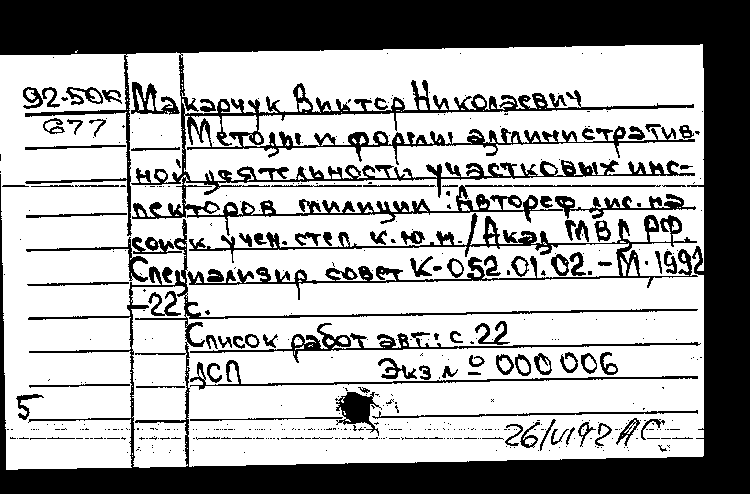 92-50к Макарчук, Виктор Николаевич
677 Методы и формы административ-
ной деятельности участковых инс-
пекторов милиции : Автореф. дис. на
соиск. учен. степ. к.ю.н. / Акад. МВД РФ.
Специализир. совет К-052.01.02. - М., 1992
-22 с.
Список работ авт.: с. 22
ДСП Экз № 000006
5
26/VI 92 АС